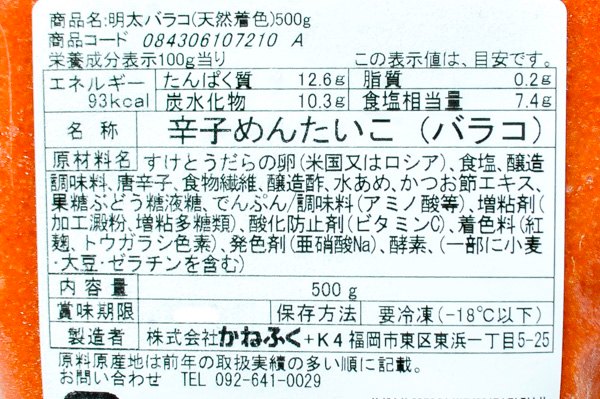 商品名:明太バラコ(天然着色)500g
商品コード 084306107210 A
栄養成分表示100g当り この表示値は、目安です。
エネルギー 93kcal たんぱく質 12.6g 脂質 0.2g
炭水化物 10.3g 食塩相当量 7.4g
名称 辛子めんたいこ（バラコ）
原材料名 すけとうだらの卵(米国又はロシア)、食塩、醸造
調味料、唐辛子、食物繊維、醸造酢、水あめ、かつお節エキス、
果糖ぶどう糖液糖、でんぷん/調味料(アミノ酸等)、増粘剤(
加工澱粉、増粘多糖類)、酸化防止剤(ビタミンC)、着色料(紅
麹、トウガラシ色素)、発色剤(亜硝酸Na)、酵素、(一部に小麦
・大豆・ゼラチンを含む)
内容量 500g
賞味期限 保存方法 要冷凍(-18℃以下)
製造者 株式会社かねふく+K4 福岡市東区東浜一丁目5-25
原料原産地は前年の取扱実績の多い順に記載。
お問い合わせ TEL 092-641-0029